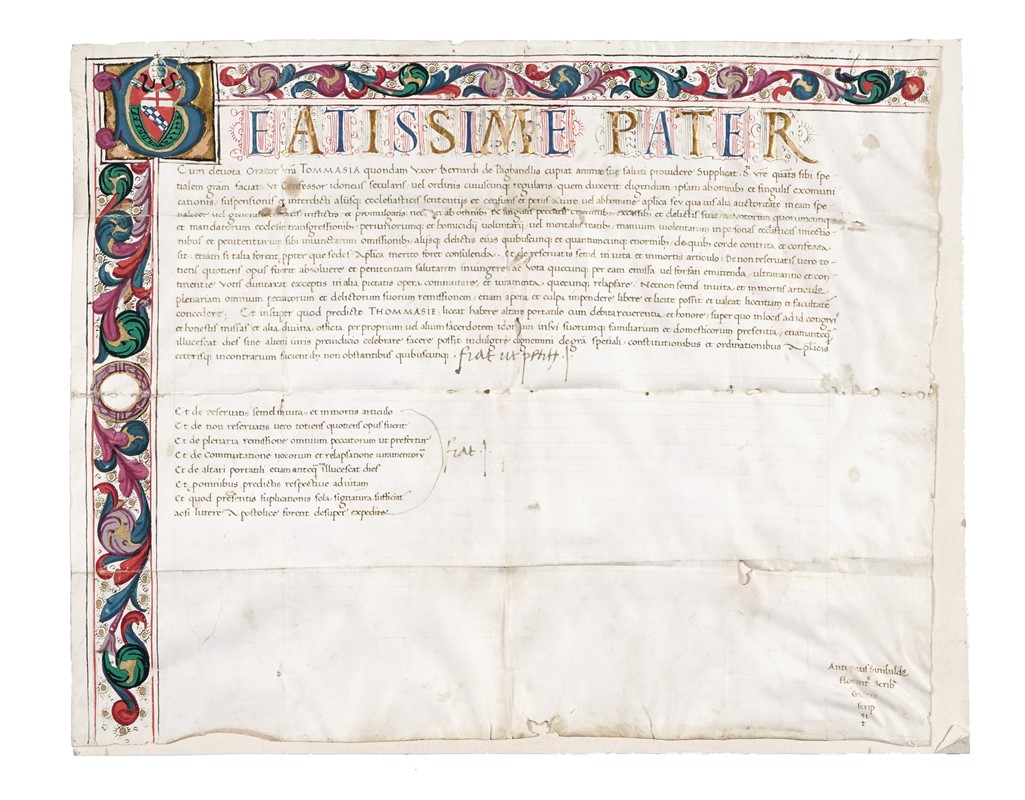 BEATISSIME PATER
Cum deuota Oratrix vra TOMMASIA quondam Vxor Bernardi de Paghanellis cupiat animae sue saluti prouidere Supplicat. S. vre quats sibi spe
tialem gram faciat. Vt Confessor idoneus secularis uel ordinis cuiuscunq regularis quem duxerit eligendum ipsam ab omnib et singulis excomuni
cationis, suspensionis et interdicti aliisq ecclesiasticis sententiis et censuris et penis a iure uel ab homine aplica seu qua uis alia auctoritate in eam spe
cialiter uel generaliter inflictis et promulgatis nec non ab omnib et singulis peccatis criminib excessib et delictis suis ac uotorum quorumcunq
et mandatorum ecclesie transgressionib periuriorumq et homicidij uoluntarij uel mentalis reatib manuum uiolentarum in personas ecclasticas iniectio
nibus et penitentiarum sibi iniunctarum omissionib, aliisq delictis eius quibuscunq et quantuncunq enormib, de quib corde contrita et confessa
sit: etiam si talia forent ppter que sedes Aplica merito foret consulenda. Et de reseruatis semel in uita et in mortis articulo: De non reseruatis uero to
tiens quotiens opus fuerit absoluere et penitentiam salutarem iniungere: ac vota quecunq per eam emissa uel forsan emittenda, ultramarino et con
tinentie votis duntaxat exceptis in alia pietatis opera commutare, et iuramenta quecunq relaxare. Necnon semel in uita, et in mortis articulo
plenariam omnium peccatorum et delictorum suorum remissionem, etiam a pena et culpa impendere libere et licite possit et ualeat licentiam et facultate
concedere: Et insuper quod predicte THOMMASIE, liceat habere altare portatile cum debita reuerentia, et honore, super quo in locis ad id congrui
et honestis missas et alia diuina officia per proprium uel alium sacerdotem idoneum in sui suorumq familiarium et domesticorum presentia, etiam anteq
illucescat dies sine alieni iuris preiudicio celebrare facere possit indulgere dignemini de gra speciali, constitutionibus et ordinationibus Aplicis
ceterisq in contrarium facientib non obstantibus quibuscunq. fiat ut petitur. J
Et de reseruatis semel in uita, et in mortis articulo
Et de non reseruatis uero totiens quotiens opus fuerit
Et de plenaria remissione omnium peccatorum ut prefertur
Et de Commutatione uotorum et relaxatione iuramentorum
fiat. J
Et de altari portatili etiam anteq illucescat dies
Et p omnibus predictis respectiue ad uitam
Et quod presentis suplicationis sola signatura sufficiat
ac si littere Apostolice forent desuper expedite
Antonius Sinibaldus
Florent Scrib
scrip
si
t